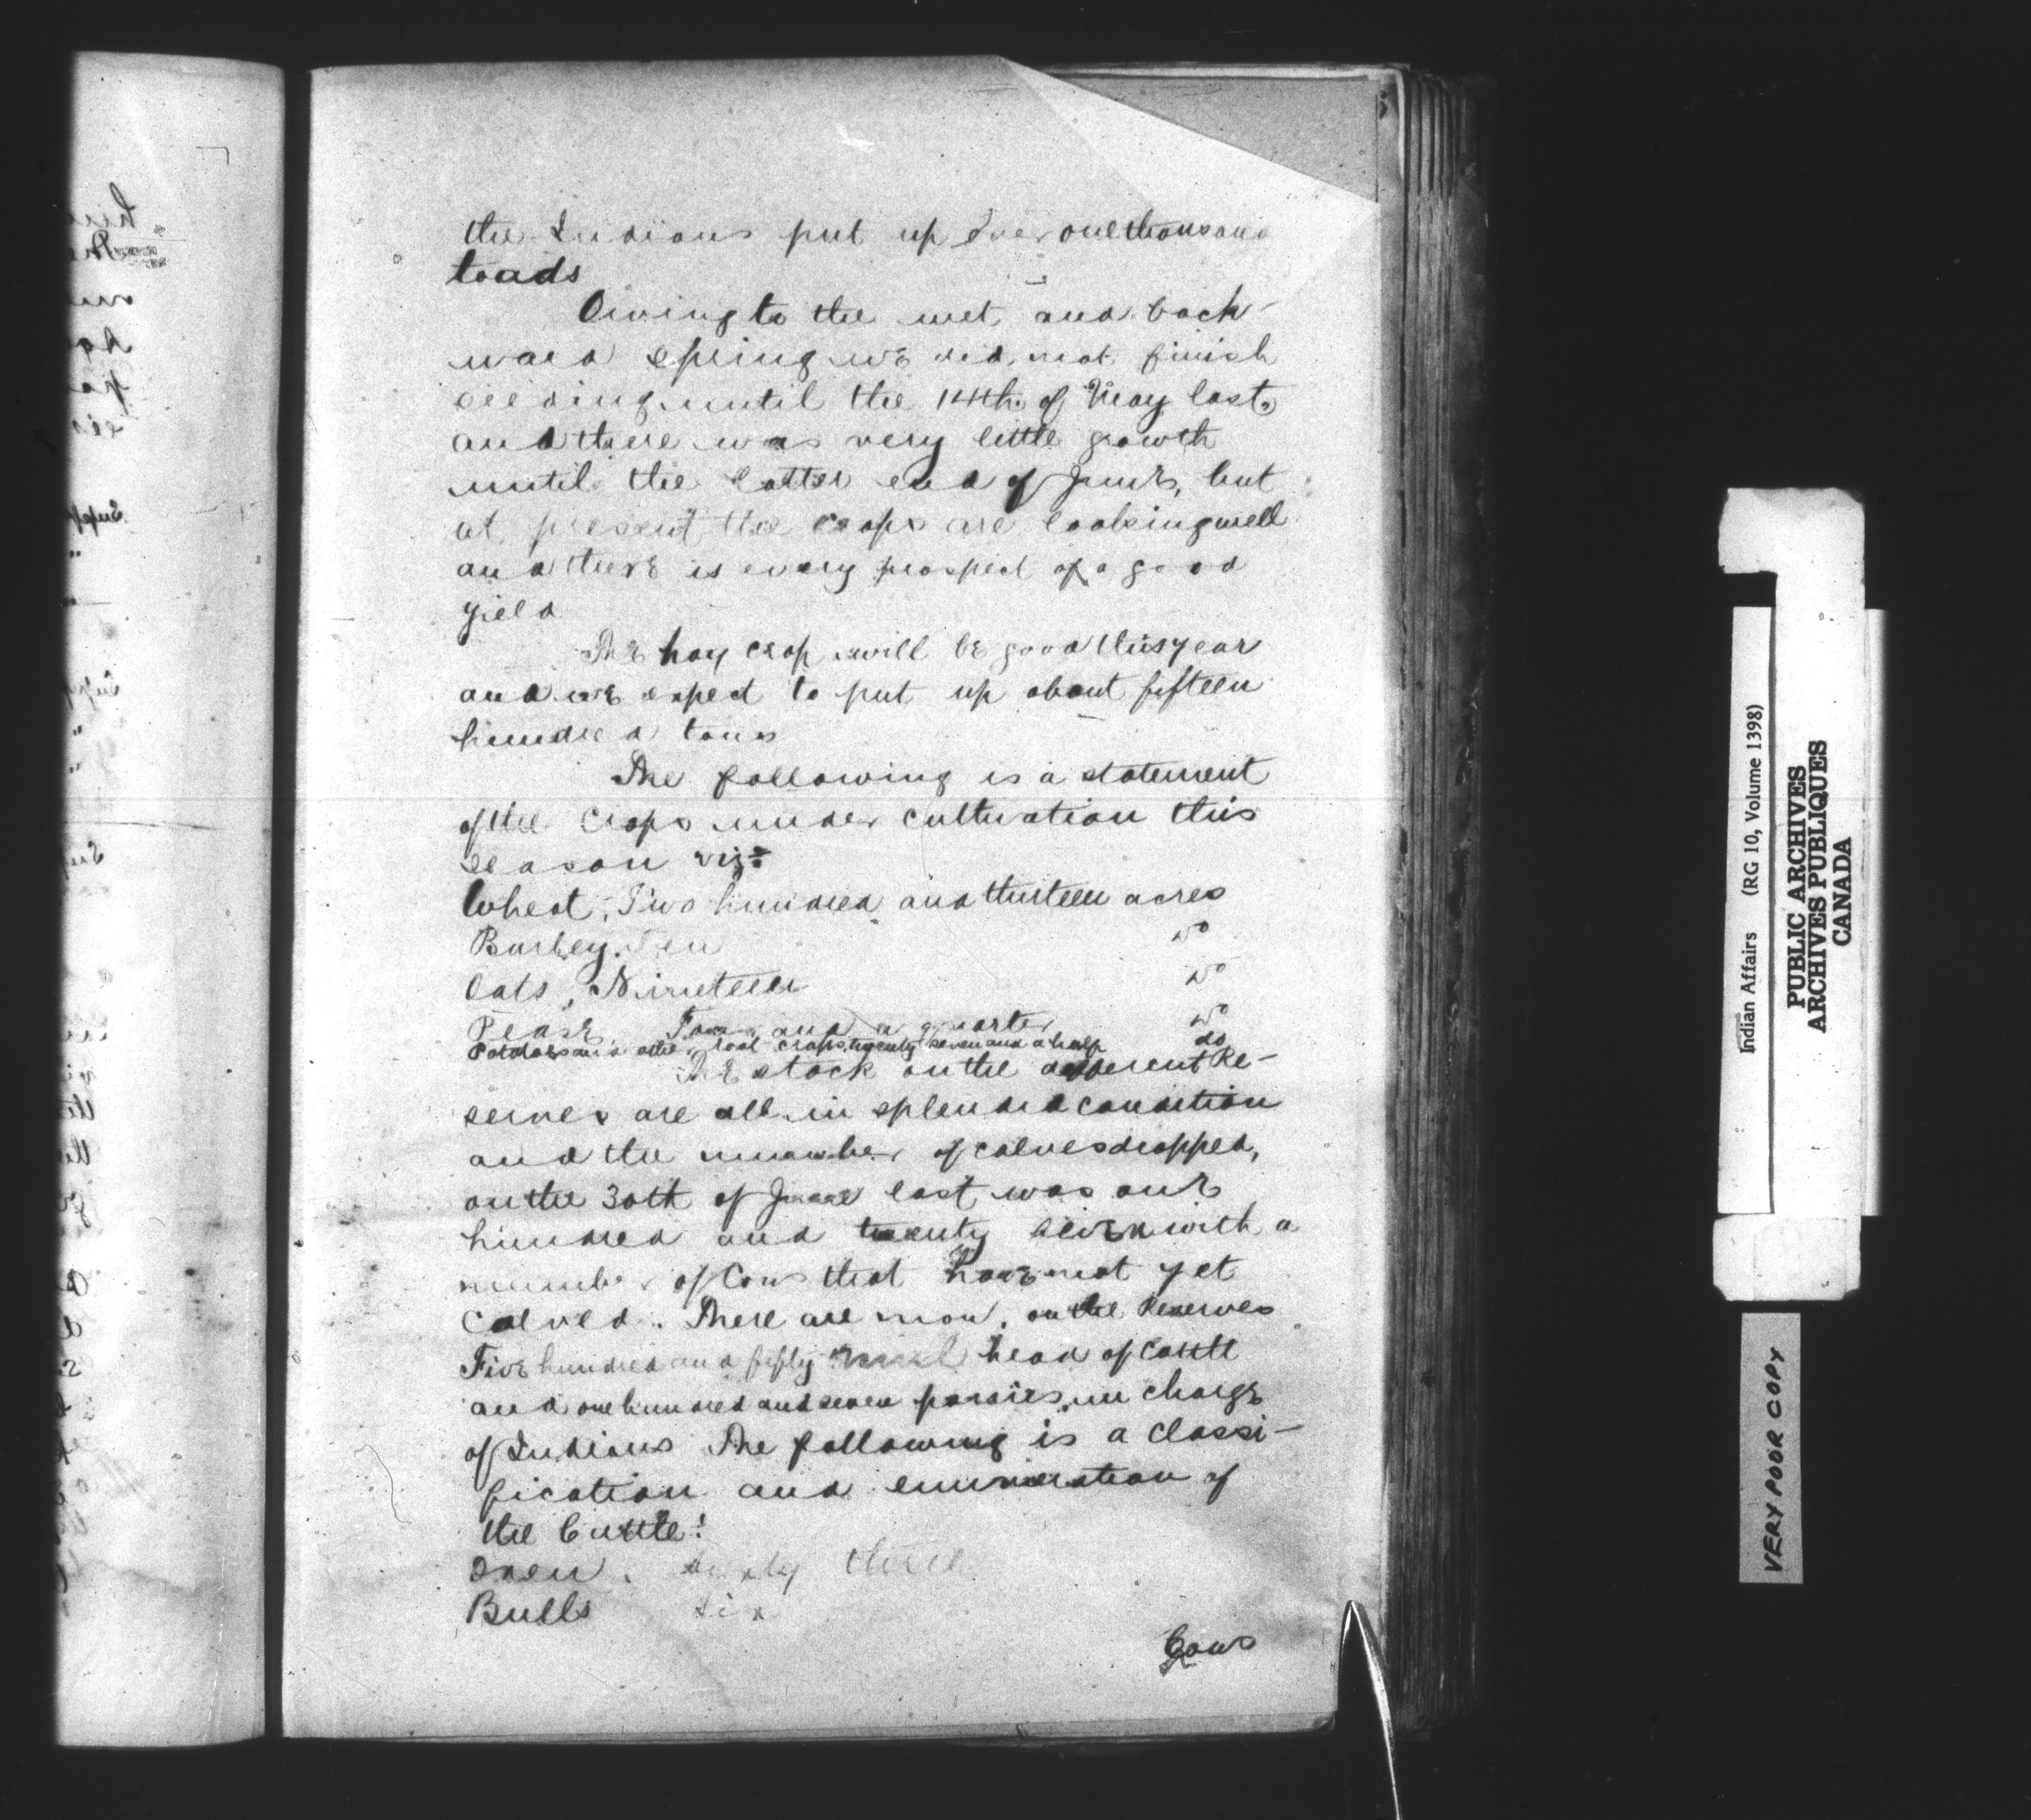 the Indians put up over one thousand
loads
Owing to the wet and back-
ward spring we did not finish
seeding until the 14th of May last,
and there was very little growth
until the latter end of June, but
at present the crops are looking well
and there is every prospect of a good
yield
The hay crop will be good this year
and we expect to put up about fifteen
hundred tons
The following is a statement
of the Crops under cultivation this
season viz:
Wheat, Two hundred and thirteen acres
Barley. Ten do
Oats, Nineteen do
Pease and a quarter do
Potatoes and other root crops, twenty seven and a half do
The stock on the different Re-
serves are all in splendid condition
and the number of calves dropped,
on the 30th of June last was one
hundred and twenty seven with a
number of Cows that have not yet
calved. There are now, on the Reserves
Five hundred and fifty head of Cattle
and one hundred and seven ponies in charge
of Indians The following is a classi-
fication and enumeration of
the Cattle:
Oxen. three
Bulls Six
Cows
Indian Affairs (RG 10, Volume 1398)
PUBLIC ARCHIVES
ARCHIVES PUBLIQUES
CANADA
VERY POOR COPY